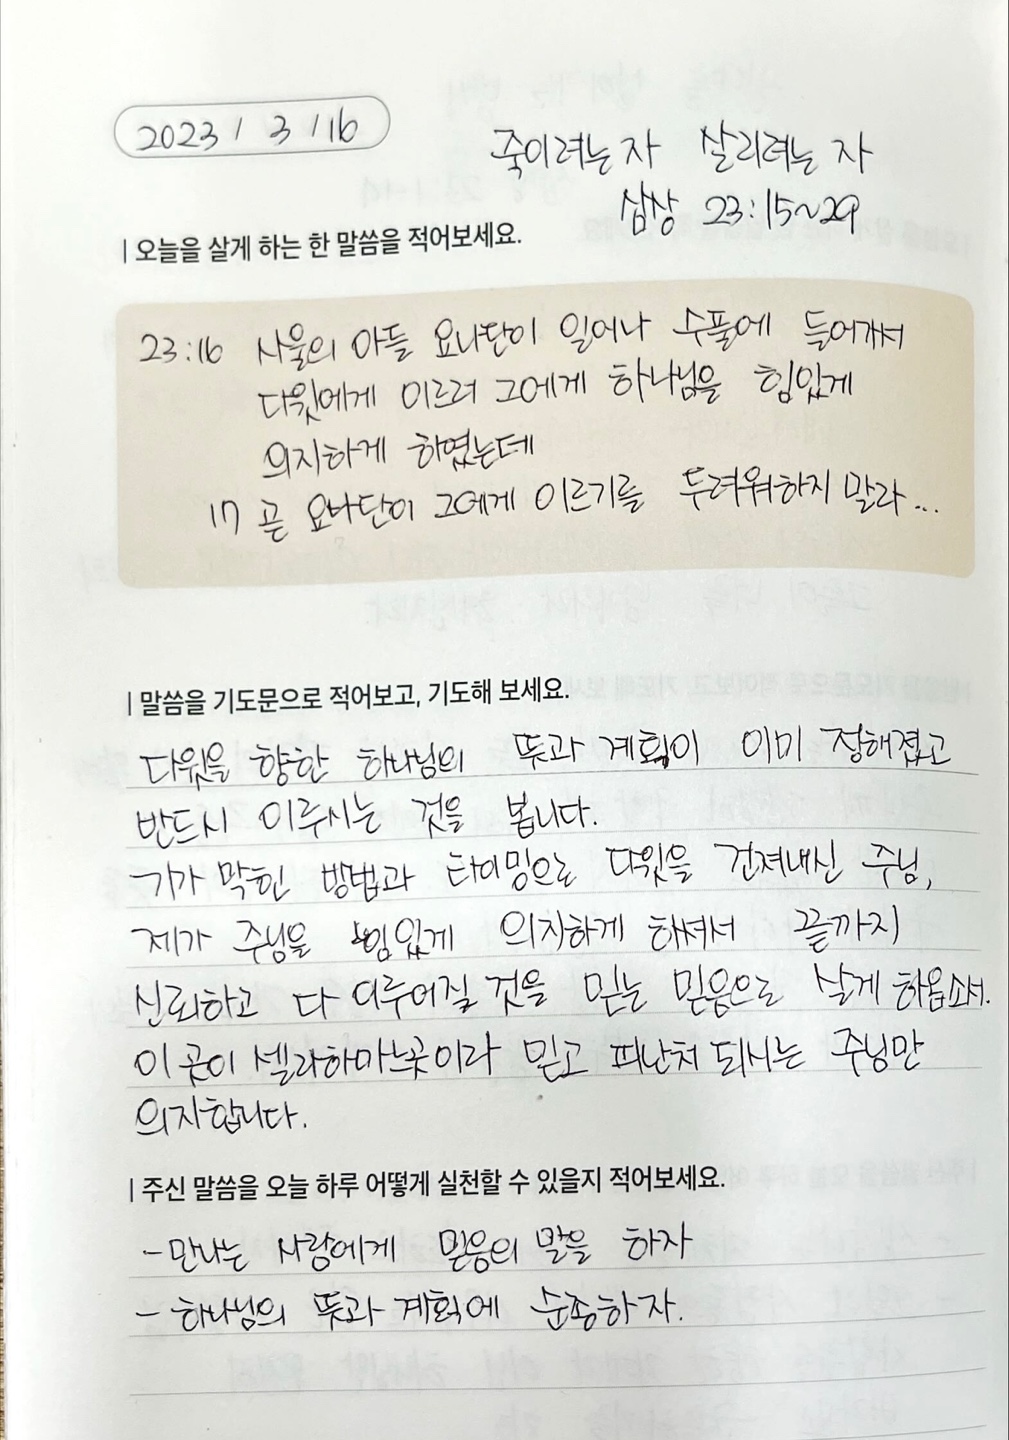 2023 / 3 / 16
죽이려는 자 살리려는 자
삼상 23:15~29
| 오늘을 살게 하는 한 말씀을 적어보세요.
23:16 사울의 아들 요나단이 일어나 수풀에 들어가서
다윗에게 이르러 그에게 하나님을 힘있게
의지하게 하였는데
17 곧 요나단이 그에게 이르기를 두려워하지 말라...
| 말씀을 기도문으로 적어보고, 기도해 보세요.
다윗을 향한 하나님의 뜻과 계획이 이미 정해졌고
반드시 이루시는 것을 봅니다.
기가 막힌 방법과 타이밍으로 다윗을 건져내신 주님,
제가 주님을 힘있게 의지하게 하셔서 끝까지
신뢰하고 다 이루어질 것을 믿는 믿음으로 살게 하옵소서.
이 곳이 셀라하마느곳이라 믿고 피난처 되시는 주님만
의지합니다.
| 주신 말씀을 오늘 하루 어떻게 실천할 수 있을지 적어보세요.
- 만나는 사람에게 믿음의 말을 하자
- 하나님의 뜻과 계획에 순종하자.